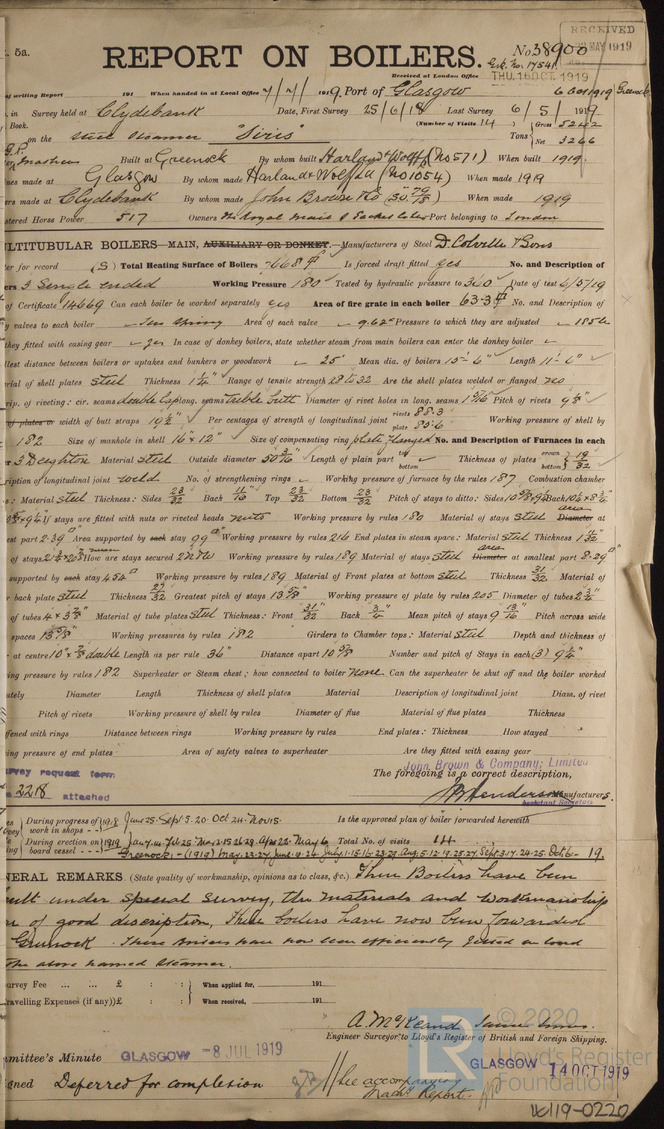 5a.
REPORT ON BOILERS.
No. 38900
RECEIVED
MAY 1919
Grk. No. 17541
Received at London Office
THU. 16 OCT. 1919
of writing Report 191 When handed in at Local Office 7/7/1919. Port of Glasgow 6 Oct 1919 Greenock
in Survey held at Clydebank Date, First Survey 25/6/18 Last Survey 6/5/1919
Book. (Number of Visits 14)
on the Steel Steamer "Siris" Tons Gross 5242 Net 3266
Built at Greenock By whom built Harland & Wolff (No 571) When built 1919
ines made at Glasgow By whom made Harland & Wolff Ltd (No 1054) When made 1919
ers made at Clydebank By whom made John Brown & Co When made 1919
stered Horse Power 517 Owners The Royal Mail S Packet Co Port belonging to London
ULTITUBULAR BOILERS—MAIN, AUXILIARY OR DONKEY.—Manufacturers of Steel D. Colville & Sons
ter for record (S) Total Heating Surface of Boilers Is forced draft fitted yes No. and Description of
ers 3 Single ended Working Pressure 180 Tested by hydraulic pressure to 360 Date of test 6/5/19
of Certificate 14669 Can each boiler be worked separately yes Area of fire grate in each boiler 63.3 No. and Description of
y valves to each boiler Two Spring Area of each valve 9.62" Pressure to which they are adjusted 185 lb
they fitted with easing gear yes In case of donkey boilers, state whether steam from main boilers can enter the donkey boiler
llest distance between boilers or uptakes and bunkers or woodwork 25" Mean dia. of boilers 15'-6" Length 11'-6"
rial of shell plates Steel Thickness 1 1/4" Range of tensile strength 28 to 32 Are the shell plates welded or flanged no
rip. of riveting: cir. seams double lap long. seams treble butt Diameter of rivet holes in long. seams 1 5/16 Pitch of rivets 9 1/8"
of plates or width of butt straps 19 1/2" Per centages of strength of longitudinal joint rivets 88.3 plate 85.6 Working pressure of shell by
182 Size of manhole in shell 16" x 12" Size of compensating ring plate flanged No. and Description of Furnaces in each
3 Deighton Material Steel Outside diameter 50 3/16" Length of plain part top bottom Thickness of plates crown bottom 19/32
ription of longitudinal joint weld No. of strengthening rings Working pressure of furnace by the rules 187 Combustion chamber
s: Material Steel Thickness: Sides 23/32 Back 11/16 Top 23/32 Bottom 23/32 Pitch of stays to ditto: Sides Back
If stays are fitted with nuts or riveted heads nuts Working pressure by rules 180 Material of stays Steel area Diameter at
est part 2.39 Area supported by each stay 99" Working pressure by rules 216 End plates in steam space: Material Steel Thickness 1 1/32"
of stays How are stays secured 2 Nuts Working pressure by rules 189 Material of stays Steel area Diameter at smallest part 8.29"
supported by each stay Working pressure by rules 189 Material of Front plates at bottom Steel Thickness 31/32 Material of
back plate Steel Thickness 27/32 Greatest pitch of stays 13 5/8" Working pressure of plate by rules 205 Diameter of tubes 2 3/4"
of tubes 4 x 3 7/8" Material of tube plates Steel Thickness: Front 31/32 Back 3/4" Mean pitch of stays 9 13/16 Pitch across wide
spaces 13 5/8" Working pressures by rules 182 Girders to Chamber tops: Material Steel Depth and thickness of
at centre 10" x 7/8 double Length as per rule 36" Distance apart 10 5/8 Number and pitch of Stays in each (3) 9 1/4"
ing pressure by rules 182 Superheater or Steam chest; how connected to boiler None. Can the superheater be shut off and the boiler worked
ately Diameter Length Thickness of shell plates Material Description of longitudinal joint Diam. of rivet
Pitch of rivets Working pressure of shell by rules Diameter of flue Material of flue plates Thickness
ffened with rings Distance between rings Working pressure by rules End plates: Thickness How stayed
ing pressure of end plates Area of safety valves to superheater Are they fitted with easing gear
urvey request form
2218 attached
John Brown & Company, Limited
The foregoing is a correct description,
J. M. Henderson Manufacturers.
Assistant Secretary
During progress of work in shops - - 1918 June 25. Sept 5. 20. Oct 24. Nov 15. Is the approved plan of boiler forwarded herewith
During erection on board vessel - - - 1919 Jan 7. 14. Feb 25. Mar 2. 15. 26. 29. Apr 23. May 6 Total No. of visits 14
Greenock:- (1919) May. 23. 27 June. 9. 24. July. 1. 15. 16. 23. 29. Aug. 5. 12. 19. 25. 27. Sept. 3. 17. 24. 25. Oct. 6. - 19.
NERAL REMARKS (State quality of workmanship, opinions as to class, &c.) These Boilers have been
uilt under Special Survey, the materials and workmanship
of good description, These boilers have now been forwarded
Greenock. These boilers have now been efficiently fitted on board
the above named steamer.
urvey Fee ... ... £ : : When applied for, 191
ravelling Expenses (if any) £ : : When received, 191
A. McKeand James
Engineer Surveyor to Lloyd's Register of British and Foreign Shipping.
mmittee's Minute GLASGOW - 8 JUL 1919
GLASGOW 14 OCT 1919
gned Deferred for completion
See accompanying
Machy Report.
© 2020
LR Lloyd's Register
Foundation
W119-0220